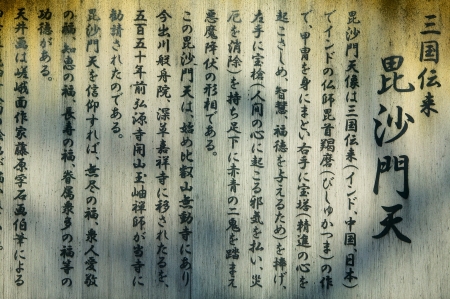 三国伝来
毘沙門天
毘沙門天像は三国伝来(インド、中国、日本)
でインドの仏師毘首羯磨(びしゅかつま)の作
で、甲冑を身にまとい右手に宝塔(精進の心を
起こさしめ、智慧、福徳を与えるため)を捧げ、
左手に宝棒(人間の心に起こる邪気を払い、災
厄を消除)を持ち足下に赤青の二鬼を踏まえ
悪魔降伏の形相である。
この毘沙門天は、始め比叡山無動寺にあり
今出川般舟院、深草嘉祥寺に移されたるを、
五百五十年前弘源寺開山玉岫禅師が当寺に
勧請されたのである。
毘沙門天を信仰すれば、無尽の福、衆人愛敬
の福、知恵の福、長寿の福、眷属衆多の福等の
功徳がある。
天井画は嵯峨面作家藤原孚石画伯筆による